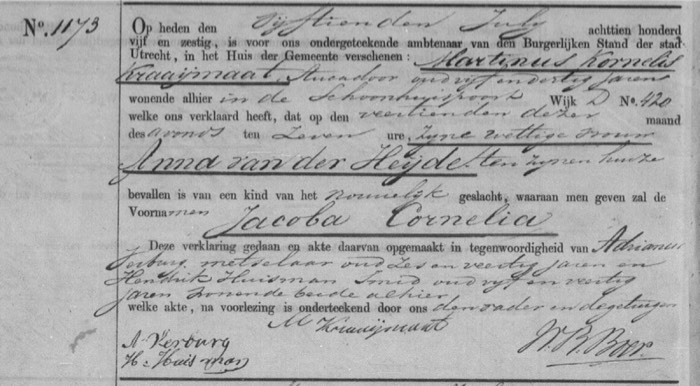 No. 1173
Op heden den Vijftienden July achttien honderd
vijf en zestig, is voor ons ondergeteekende ambtenaar van den Burgerlijken Stand der stad
Utrecht, in het Huis der Gemeente verschenen: Martinus Kornelis
Kraaijmaat, Stucadoor oud vijf en dertig jaren
wonende alhier in de Wijk D No. 420
welke ons verklaard heeft, dat op den veertienden dezer maand
des avonds ten Zeven ure, Zyne wettige vrouw
Anna van der Heyde ten zynen huize
bevallen is van een kind van het vrouwelyk geslacht, waaraan men geven zal de
Voornamen Jacoba Cornelia
Deze verklaring gedaan en akte daarvan opgemaakt in tegenwoordigheid van Adrianus
Verburg, metselaar oud Zes en veertig jaren en
Hendrik Huisman Smid oud vyf en veertig
jaren wonende beide alhier
welke akte, na voorlezing is onderteekend door ons den vader en de getuigen
M Kraaijmaat
A Verburg
H. Huisman